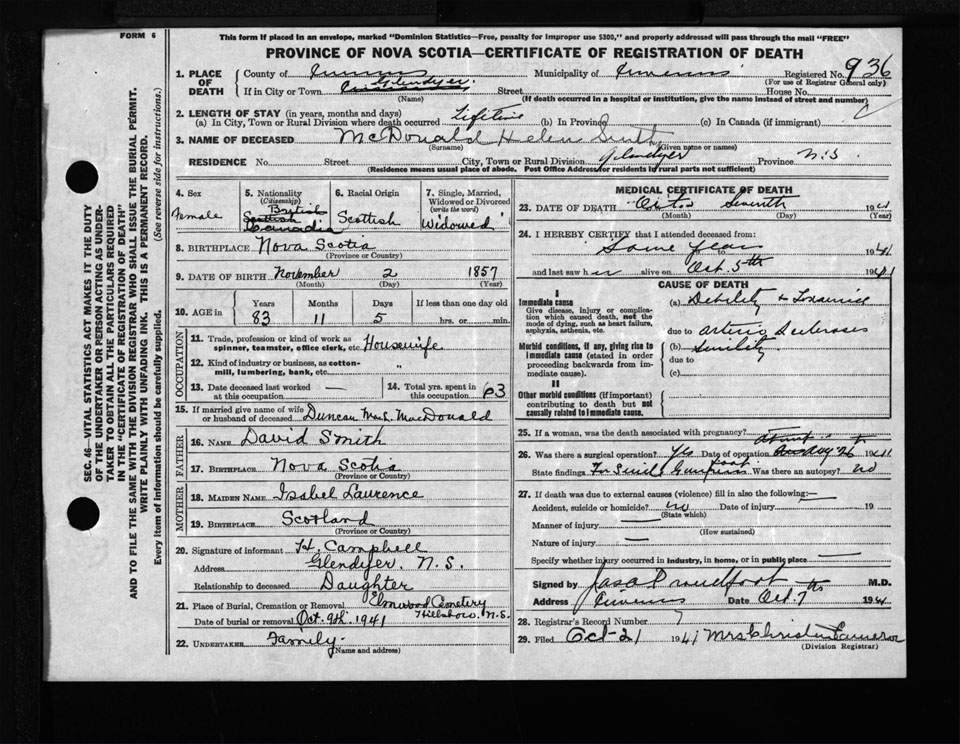 FORM 6
This form if placed in an envelope, marked "Dominion Statistics—Free, penalty for improper use $300," and properly addressed will pass through the mail "FREE"
PROVINCE OF NOVA SCOTIA—CERTIFICATE OF REGISTRATION OF DEATH
Registered No. 936
(For use of Registrar General only)
1. PLACE OF DEATH
County of Inverness Municipality of Inverness
If in City or Town Glendyer Street House No.
(Name) (If death occurred in a hospital or institution, give the name instead of street and number)
2. LENGTH OF STAY (in years, months and days)
(a) In City, Town or Rural Division where death occurred Lifetime (b) In Province (c) In Canada (if immigrant)
3. NAME OF DECEASED McDonald Helen Smith
(Surname) (Given name or names)
RESIDENCE No. Street City, Town or Rural Division Glendyer Province N.S.
(Residence means usual place of abode. Post Office Address for residents in rural parts not sufficient)
4. Sex
Female
5. Nationality
(Citizenship)
British
Scottish
Canadia
6. Racial Origin
Scottish
7. Single, Married, Widowed or Divorced
(write the word)
Widowed
8. BIRTHPLACE Nova Scotia
(Province or Country)
9. DATE OF BIRTH November 2 1857
(Month) (Day) (Year)
10. AGE in
Years Months Days If less than one day old
83 11 5 hrs. or min.
OCCUPATION
11. Trade, profession or kind of work as spinner, teamster, office clerk, etc. Housewife
12. Kind of industry or business, as cotton-mill, lumbering, bank, etc. "
13. Date deceased last worked at this occupation —
14. Total yrs. spent in this occupation 63
15. If married give name of wife or husband of deceased Duncan MacL. MacDonald
FATHER
16. NAME David Smith
17. BIRTHPLACE Nova Scotia
(Province or Country)
MOTHER
18. MAIDEN NAME Isabel Laurence
19. BIRTHPLACE Scotland
(Province or Country)
20. Signature of informant H. Campbell
Address Glendyer, N.S.
Relationship to deceased Daughter
21. Place of Burial, Cremation or Removal Elmwood Cemetery
Hillsboro N.S.
Date of burial or removal Oct. 9th 1941
22. UNDERTAKER Family
(Name and address)
MEDICAL CERTIFICATE OF DEATH
23. DATE OF DEATH Oct. Seventh 1941
(Month) (Day) (Year)
24. I HEREBY CERTIFY that I attended deceased from:
Some years to 1941
and last saw her alive on Oct. 5th 1941
CAUSE OF DEATH
I
Immediate cause
Give disease, injury or complication which caused death, not the mode of dying, such as heart failure, asphyxia, asthenia, etc.
(a) Debility +
due to Arterio Sclerosis
Morbid conditions, if any, giving rise to immediate cause (stated in order proceeding backwards from immediate cause).
(b) Senility
due to
(c)
II
Other morbid conditions (if important) contributing to death but not causally related to immediate cause.
25. If a woman, was the death associated with pregnancy?
26. Was there a surgical operation? Yes Date of operation about Aug 26 1941
State findings For Senile Gangrene foot Was there an autopsy? no
27. If death was due to external causes (violence) fill in also the following:—
Accident, suicide or homicide? no Date of injury 19
(State which)
Manner of injury —
(How sustained)
Nature of injury —
Specify whether injury occurred in industry, in home, or in public place —
Signed by Jas. Proudfoot M.D.
Address Inverness Date Oct. 7th 1941
28. Registrar's Record Number 7
29. Filed Oct-21 1941 Mrs Christine Cameron
(Division Registrar)
SEC. 46— VITAL STATISTICS ACT MAKES IT THE DUTY
OF THE UNDERTAKER OR PERSON ACTING AS UNDERTAKER
TO OBTAIN ALL THE PARTICULARS REQUIRED
IN THE "CERTIFICATE OF REGISTRATION OF DEATH"
AND TO FILE THE SAME WITH THE DIVISION REGISTRAR WHO SHALL ISSUE THE BURIAL PERMIT.
WRITE PLAINLY WITH UNFADING INK. THIS IS A PERMANENT RECORD.
Every item of information should be carefully supplied. (See reverse side for instructions.)